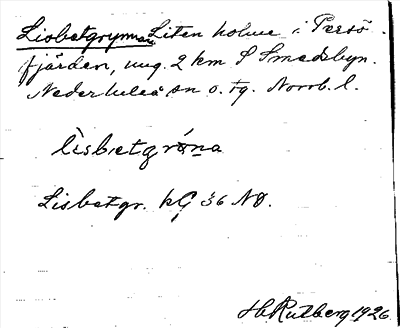 Lisbetgrynnan Liten holme i Persö-
fjärden, ung. 2 km S Smedsbyn.
Nederluleå sn o. tg. Norrb. l.
lisbetgrøna
Lisbetgr. kG 36 NO.
H Rutberg 1926